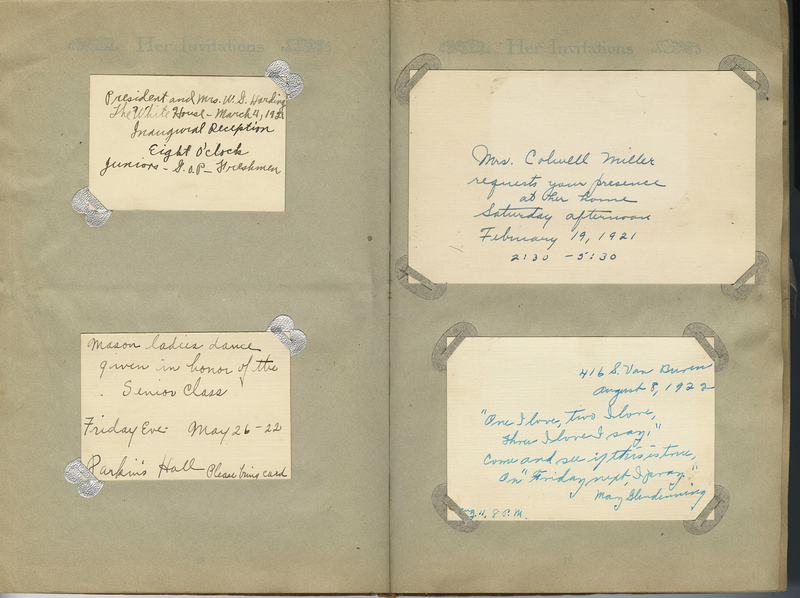 Her Invitations
President and Mrs. W. G. Harding
The White House - March 4, 192
Inaugural Reception
Eight O'clock
Juniors - G.O.P - Freshmen
Mason ladies dance
given in honor of the
Senior Class
Friday Eve- May 26-22
Parkins Hall Please bring card
Her Invitations
Mrs. Colwell Miller
requests your presence
at her home
Saturday afternoon
February 19, 1921
2:30 - 5:30
416 S. Van Buren
August 8, 1922
"One I love, two I love,
three I love I say,"
Come and see if this is true,
On "Friday next, I pray."
May Glendenning
8 P.M.